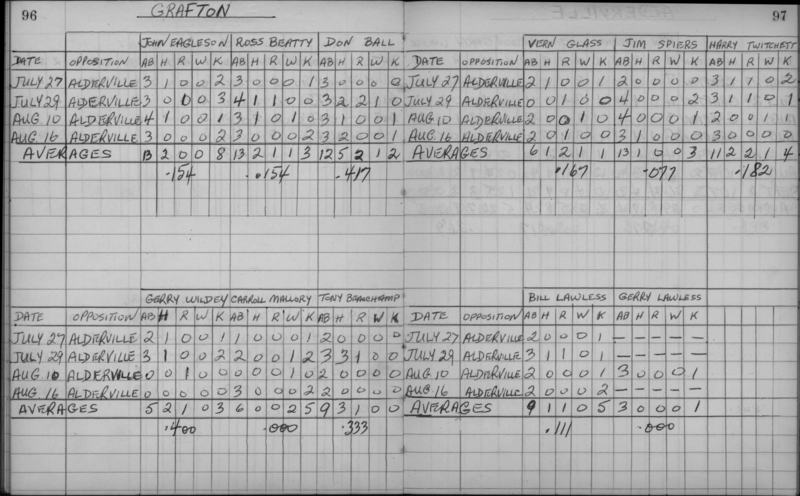 96
GRAFTON
JOHN EAGLESON ROSS BEATTY DON BALL
DATE OPPOSITION AB H R W K AB H R W K AB H R W K
JULY 27 ALDERVILLE 3 1 0 0 2 3 0 0 0 1 3 0 0 0 0
JULY 29 ALDERVILLE 3 0 0 0 3 4 1 1 0 0 3 2 2 1 0
AUG 10 ALDERVILLE 4 1 0 0 1 3 1 0 1 0 3 1 0 0 1
AUG 16 ALDERVILLE 3 0 0 0 2 3 0 0 0 2 3 2 0 0 1
AVERAGES 13 2 0 0 8 13 2 1 1 3 12 5 2 1 2
.154 .154 .417
GERRY WILDEY CARROLL MALLORY TONY BEAUCHAMP
DATE OPPOSITION AB H R W K AB H R W K AB H R W K
JULY 27 ALDERVILLE 2 1 0 0 1 1 0 0 0 1 2 0 0 0 0
JULY 29 ALDERVILLE 3 1 0 0 2 2 0 0 1 2 3 3 1 0 0
AUG 10 ALDERVILLE 0 0 1 0 0 0 0 0 1 0 2 0 0 0 0
AUG 16 ALDERVILLE 0 0 0 0 0 3 0 0 0 2 2 0 0 0 0
AVERAGES 5 2 1 0 3 6 0 0 2 5 9 3 1 0 0
.400 .000 .333
97
VERN GLASS JIM SPIERS HARRY TWITCHETT
DATE OPPOSITION AB H R W K AB H R W K AB H R W K
JULY 27 ALDERVILLE 2 1 0 0 1 2 0 0 0 0 3 1 1 0 2
JULY 29 ALDERVILLE 0 0 1 0 0 4 0 0 0 2 3 1 1 0 1
AUG 10 ALDERVILLE 2 0 0 1 0 4 0 0 0 1 2 0 0 1 1
AUG 16 ALDERVILLE 2 0 1 0 0 3 1 0 0 0 3 0 0 0 0
AVERAGES 6 1 2 1 1 13 1 0 0 3 11 2 2 1 4
.167 .077 .182
BILL LAWLESS GERRY LAWLESS
DATE OPPOSITION AB H R W K AB H R W K
JULY 27 ALDERVILLE 2 0 0 0 1 — — — — —
JULY 29 ALDERVILLE 3 1 1 0 1 — — — — —
AUG 10 ALDERVILLE 2 0 0 0 1 3 0 0 0 1
AUG 16 ALDERVILLE 2 0 0 0 2 — — — — —
AVERAGES 9 1 1 0 5 3 0 0 0 1
.111 .000